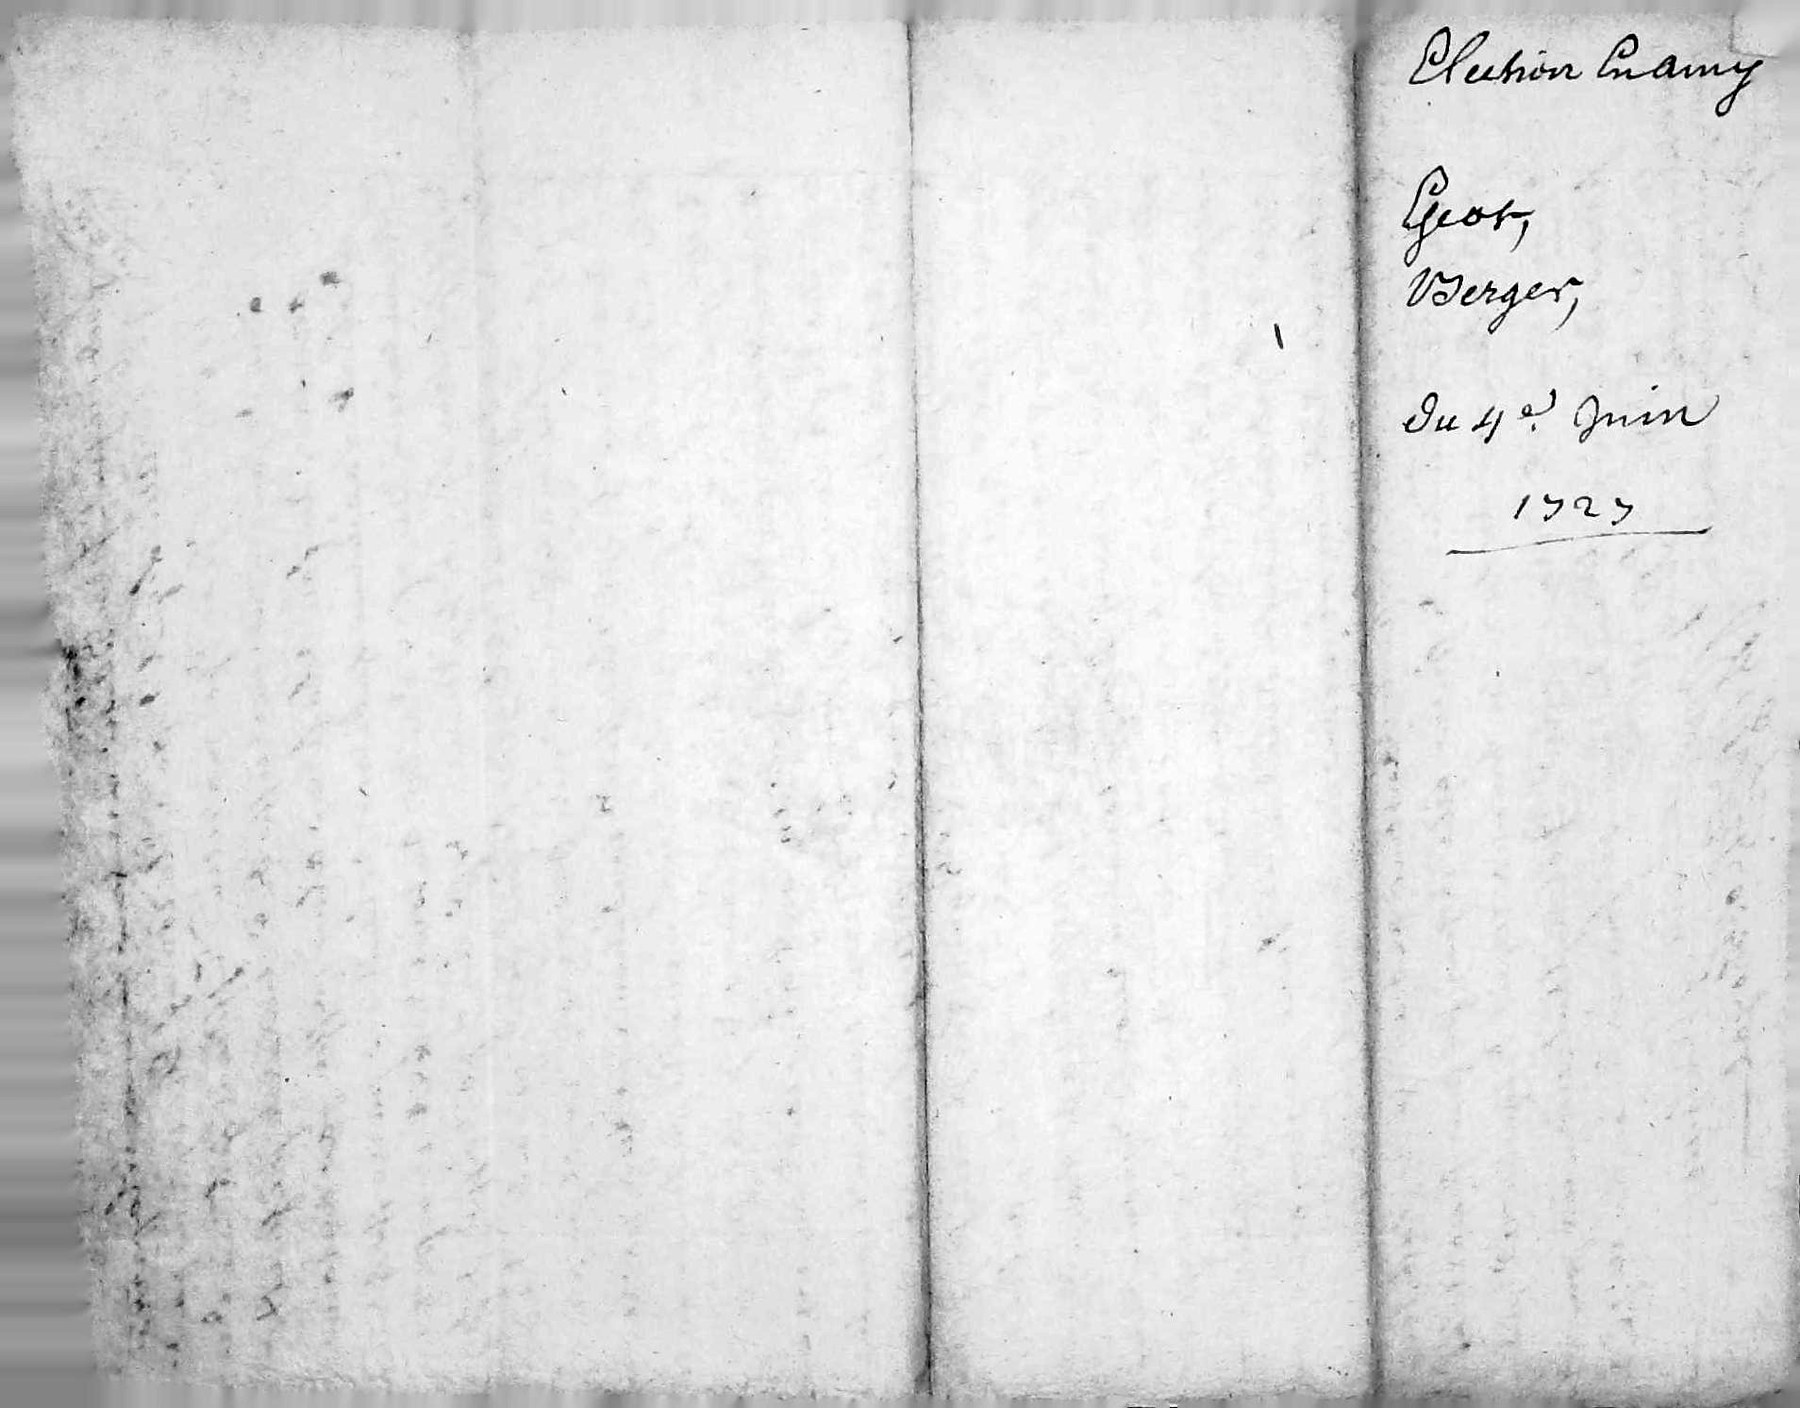 Election En amy
Geor,
Berger,
Du 4e. Juin
1727